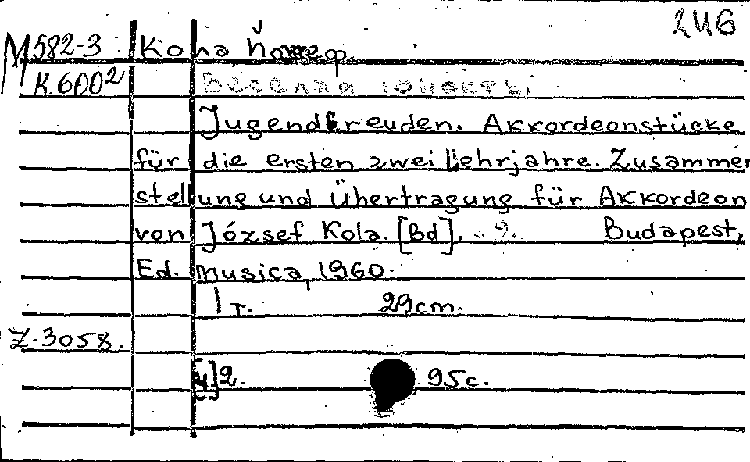 246
M 582-3 Кола Йожеф.
К.6002 Веселая юность.
Jugendfreuden. Akkordeonstücke
für die ersten zwei Lehrjahre. Zusammen
stellung und Übertragung für Akkordeon
von József Kola. [Bd]. Budapest,
Ed. Musica, 1960.
1 т. 29cm.
Z-3058.
[4]2. 95c.